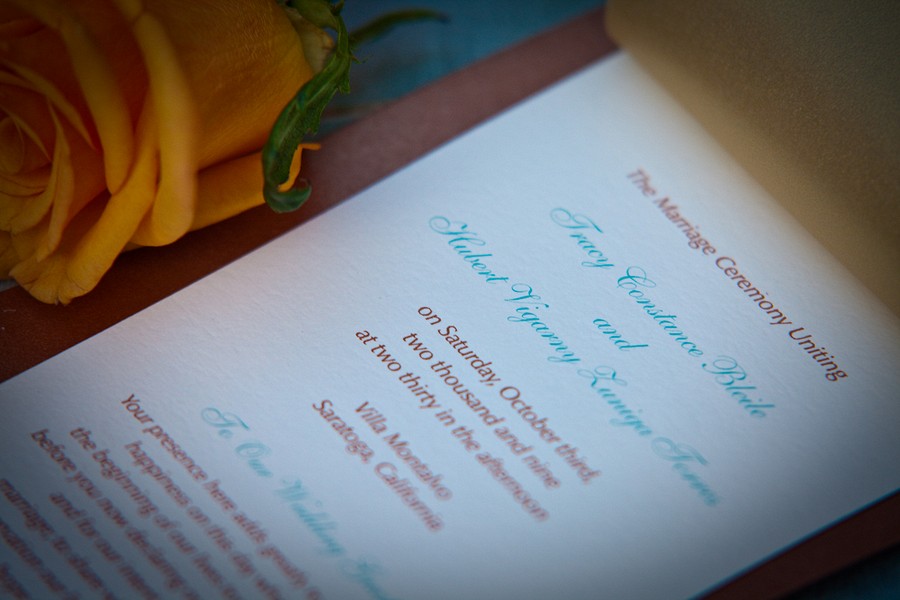 The Marriage Ceremony Uniting
Tracy Constance Bleile
and
Hubert Vigarny Zuniga Torres
on Saturday, October third,
two thousand and nine
at two thirty in the afternoon
Villa Montalvo
Saratoga, California
To Our Wedding
Your presence here adds greatly
happiness on the day
the beginning of our
before you now
and for our